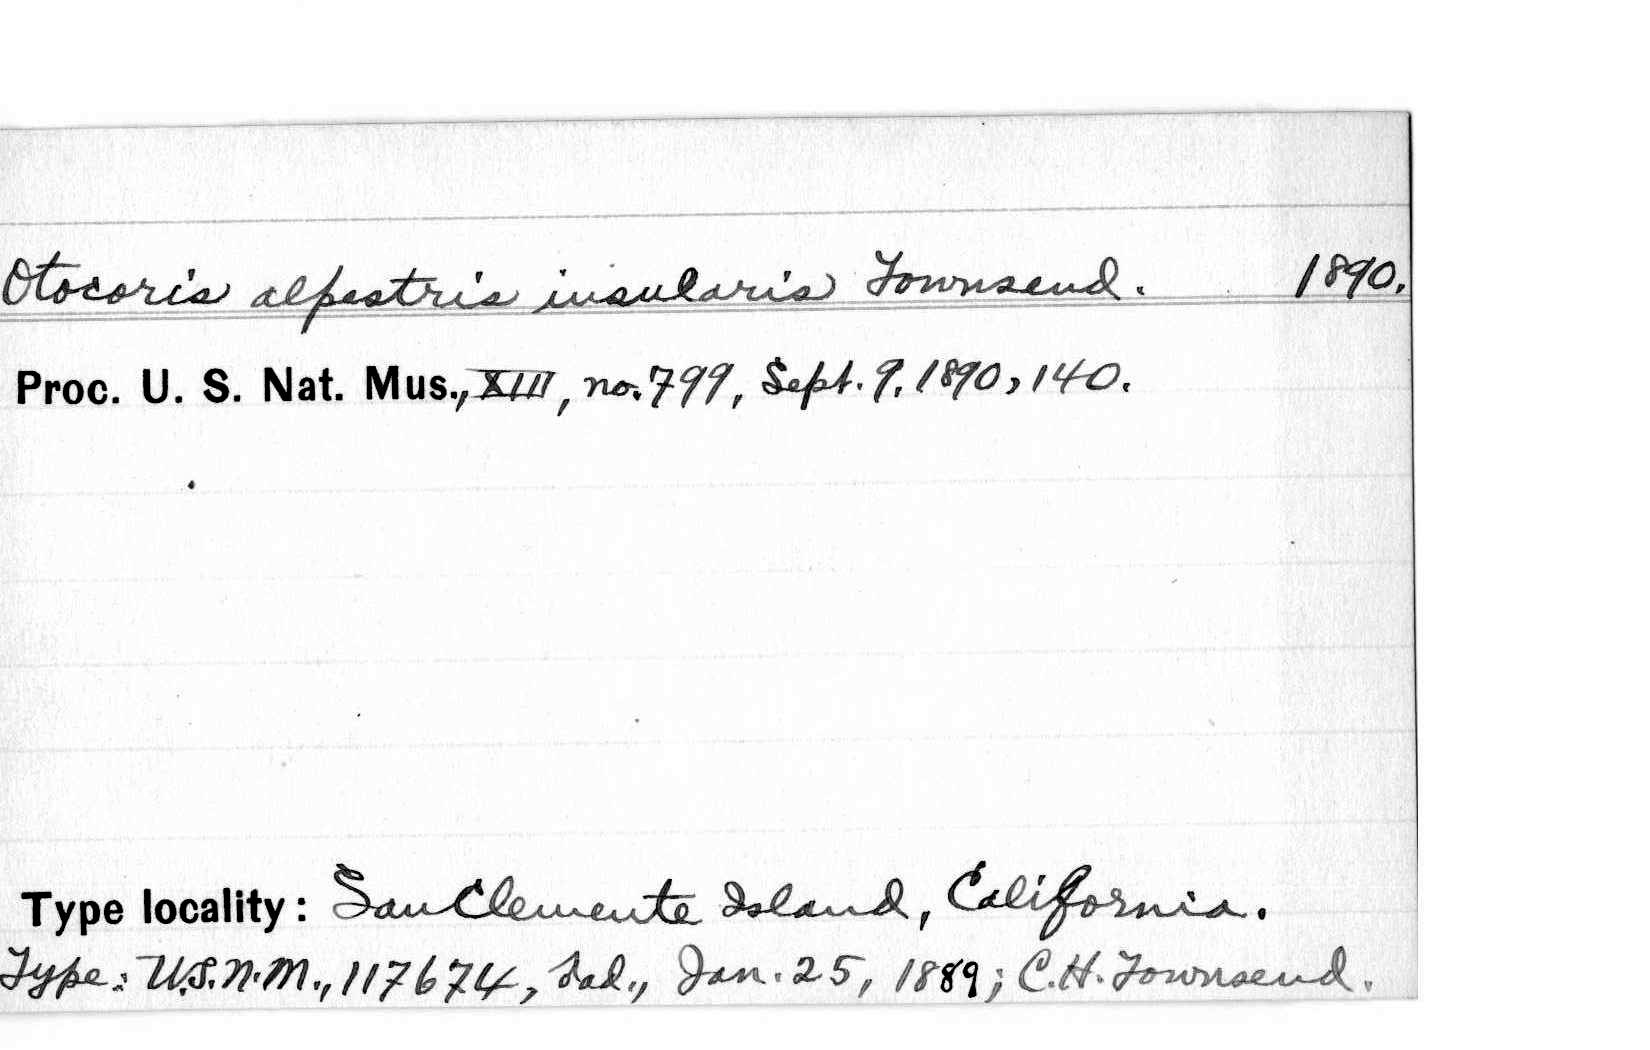 Otocoris alpestris insularis Townsend. 1890.
Proc. U. S. Nat. Mus., XIII, no. 799, Sept. 9, 1890, 140.
Type locality: San Clemente Island, California.
Type: U.S.N.M., 117674, ad., Jan. 25, 1889; C.H. Townsend.